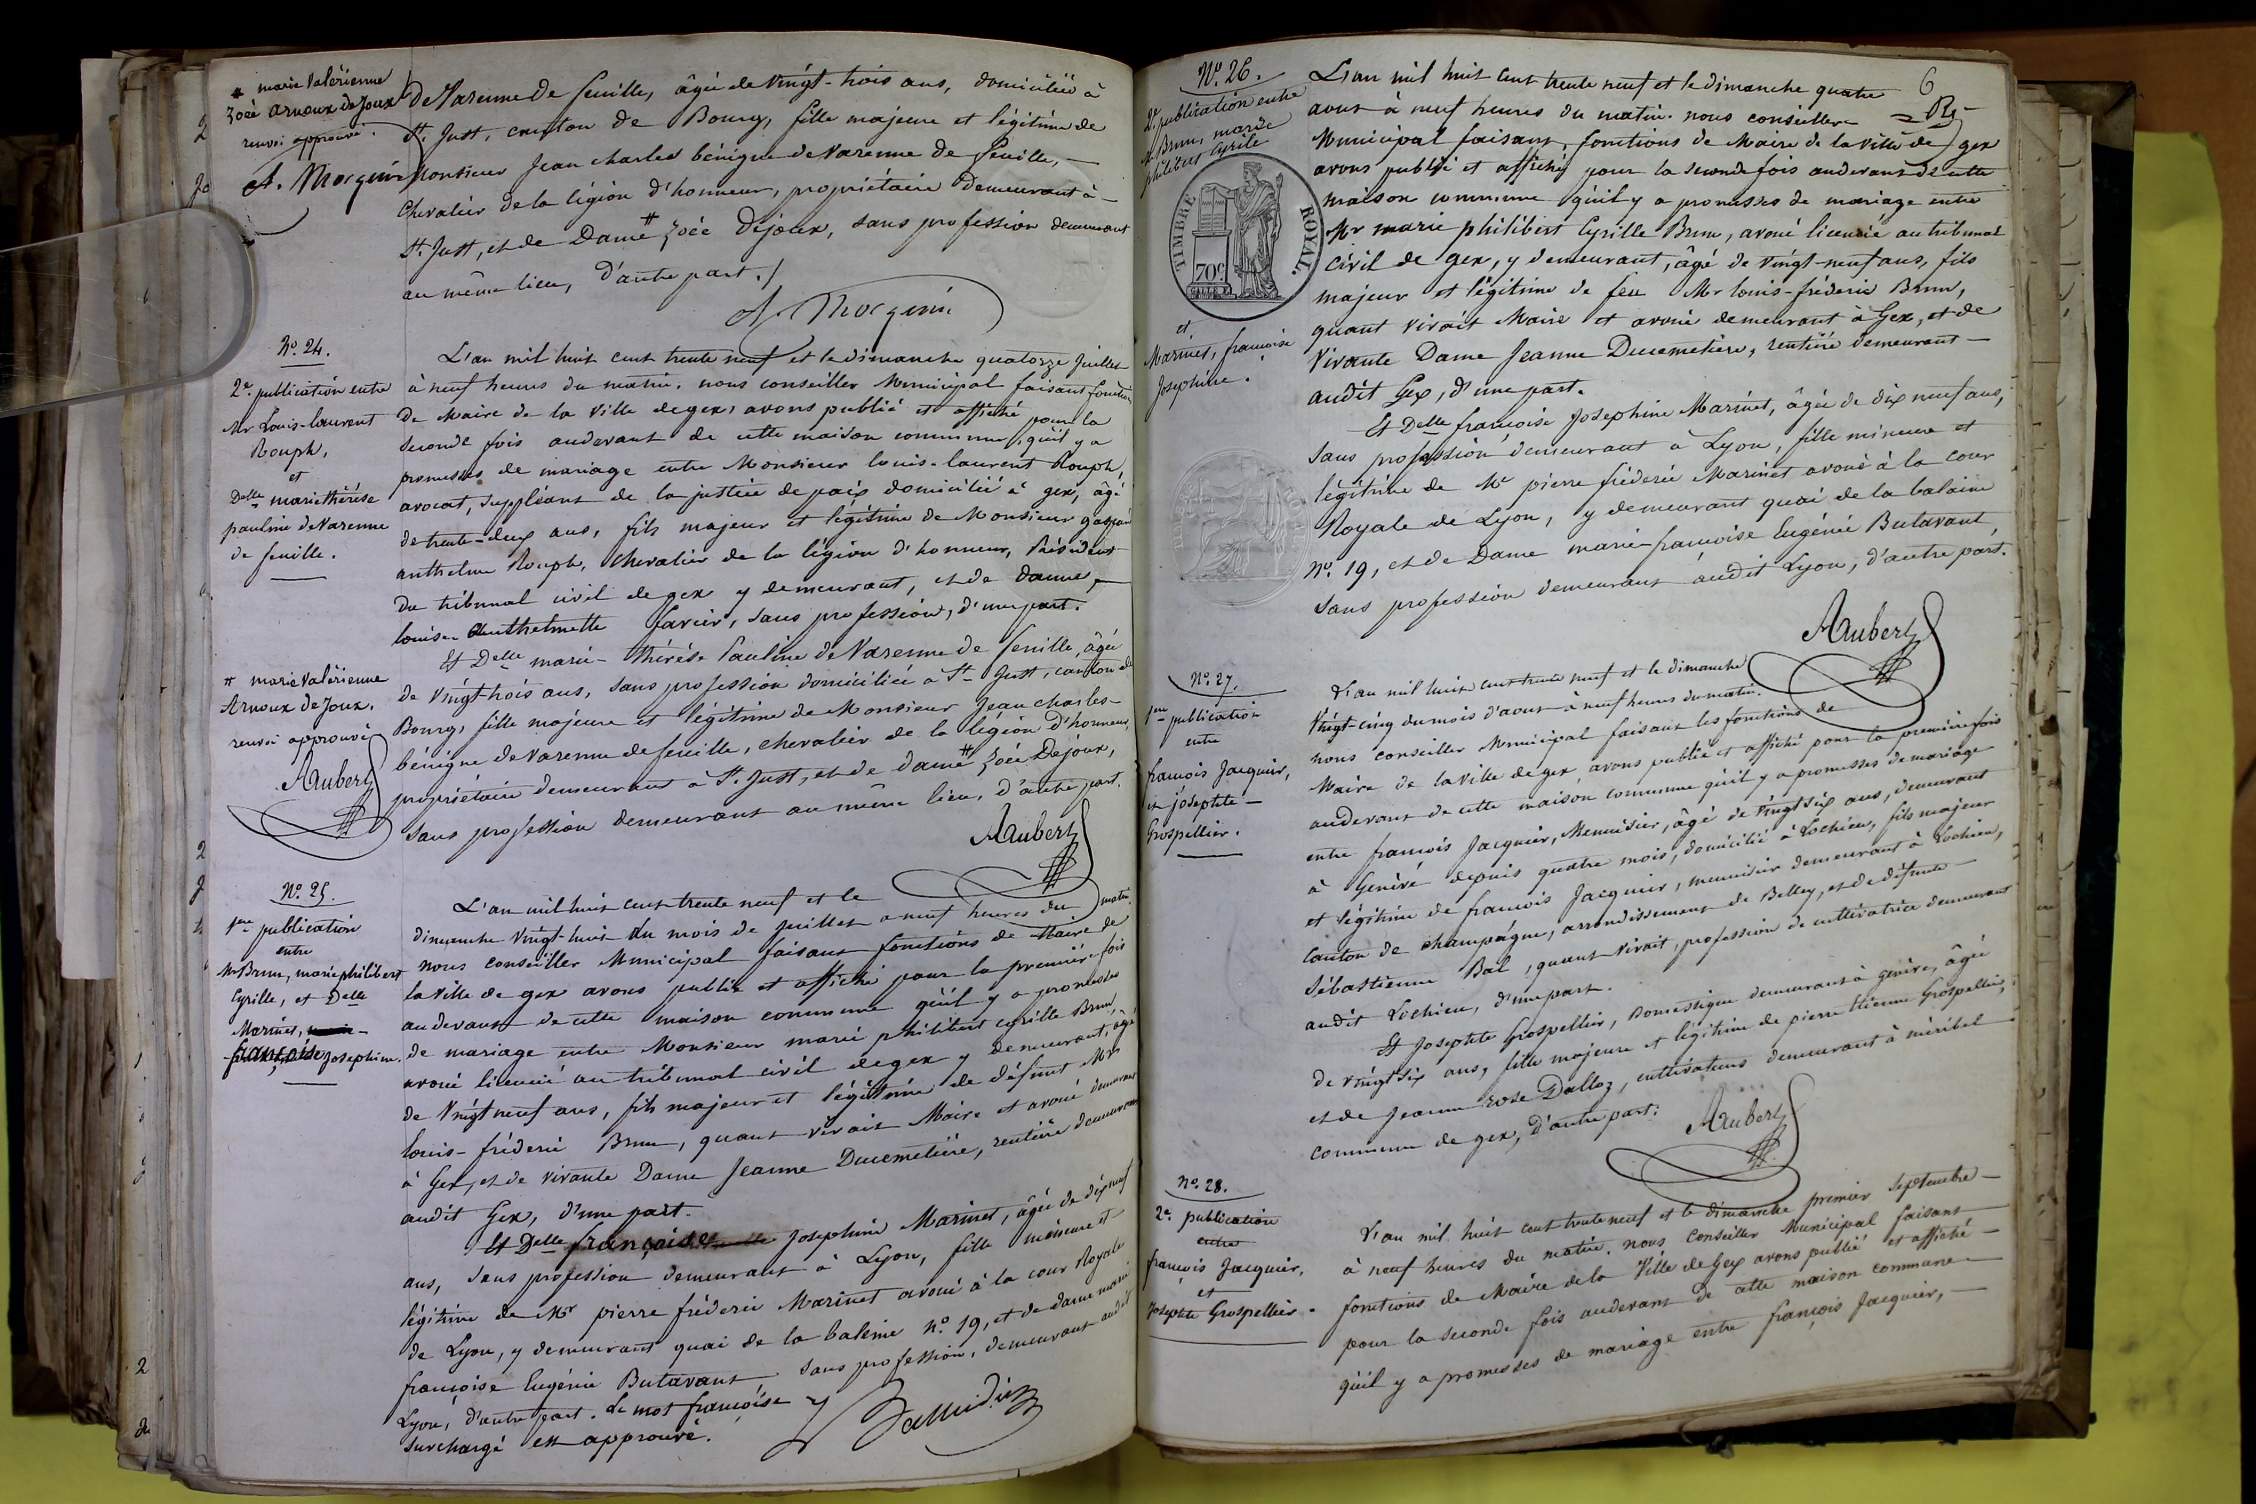 # marie Valérienne
Zoéé Arnoux de Joux
renvoi approuvé.
A. Morgini
de Varenne de feuille, âgée de vingt-trois ans, domiciliée à
St. Just, canton de Bourg, fille majeure et légitime de
Monsieur Jean charles bénigne de Varenne de feuille,
Chevalier de la légion d'honneur, propriétaire demeurant à
St. Just, et de Dame # Zoéé Dejoux, sans profession demeurant
au même lieu, d'autre part./
A. Morgini
No. 24.
2e. publication entre
Mr Louis-laurent
Rouph,
et
Delle marie thérése
pauline de Varenne
de feuille.
L'an mil huit cent trente neuf et le dimanche quatorze Juillet
à neuf heures du matin. nous conseiller Municipal faisant fonctions
de Maire de la Ville de gex, avons publié et affiché pour la
seconde fois audevant de cette maison commune, qu'il y a
promesses de mariage entre Monsieur louis-laurent Rouph,
avocat, suppléant de la justice de paix domicilié à gex, âgé
de trente-deux ans, fils majeur et légitime de Monsieur gaspard
anthelme Rouph, Chevalier de la légion d'honneur, Président
du tribunal civil de gex y demeurant, et de dame
louise Anthelmette favier, sans profession, d'une part.
Et Delle marie-thérése Pauline de Varenne de feuille, âgée
de vingt-trois ans, sans profession domiciliée à St. Just, canton de
Bourg, fille majeure et légitime de Monsieur Jean charles-
bénigne de Varenne de feuille, chevalier de la légion d'honneur,
propriétaire demeurant à St. Just, et de dame # Zoéé Dejoux,
sans profession demeurant au même lieu, d'autre part.
# marie Valérienne
Arnoux de Joux.
renvoi approuvé
Aubert
Aubert
No. 25.
1ere publication
entre
Mr Brun, marie philibert
Cyrille, et Delle
Marinet,
françoise Josephine.
L'an mil huit cent trente neuf et le
dimanche vingt-huit du mois de juillet a neuf heures du matin.
nous conseiller Municipal faisant fonctions de Maire de
la Ville de gex avons publié et affiché pour la première fois
audevant de cette maison commune qu'il y a promesses
de mariage entre Monsieur marie philibert cyrille Brun,
avoué licencié au tribunal civil de gex y demeurant, âgé
de vingt neuf ans, fils majeur et légitime de défunt Mr
louis-fréderic Brun, quant vivait Maire et avoué demeurant
à Gex, et de vivante Dame Jeanne Ducemetière, rentière demeurant
audit Gex, d'une part.
Et Delle françoise Josephine Marinet, âgée de dix neuf
ans, sans profession demeurant à Lyon, fille mineure et
légitime de Mr pierre fréderic Marinet avoué à la cour Royale
de Lyon, y demeurant quai de la baleine No. 19, et de dame marie
françoise Eugénie Butavant sans profession, demeurant audit
Lyon, d'autre part. Le mot françoise
surchargé est approuvé.
6
No. 26.
2e publication entre
Mr Brun, marie
philibert Cyrile
TIMBRE ROYAL.
70c
et
Marinet, françoise
Josephine.
L'an mil huit cent trente neuf et le dimanche quatre
aout à neuf heures du matin. nous conseiller
Municipal faisant fonctions de Maire de la ville de gex
avons publié et affiché pour la seconde fois audevant de cette
maison commune qu'il y a promesses de mariage entre
Mr marie philibert Cyrille Brun, avoué licencié au tribunal
civil de gex, y demeurant, âgé de vingt-neuf ans, fils
majeur et légitime de feu Mr louis-fréderic Brun,
quant vivait Maire et avoué demeurant à Gex, et de
vivante Dame Jeanne Ducemetière, rentière demeurant
audit Gex, d'une part.
Et Delle françoise Josephine Marinet, âgée de dix neuf ans,
sans profession demeurant à Lyon, fille mineure et
légitime de Mr pierre fréderic Marinet avoué à la cour
Royale de Lyon, y demeurant quai de la baleine
No. 19, et de Dame marie françoise Eugénie Butavant,
sans profession demeurant audit Lyon, d'autre part.
Aubert
No. 27.
1ere publication
entre
françois Jacquier,
et josephte
Grospellier.
L'an mil huit cent trente neuf et le dimanche
vingt-cinq du mois d'aout à neuf heures du matin.
nous conseiller Municipal faisant les fonctions de
Maire de la ville de gex avons publié et affiché pour la première fois
audevant de cette maison commune qu'il y a promesses de mariage
entre françois Jacquier, Menuisier, âgé de vingt six ans, demeurant
à Genève depuis quatre mois, domicilié à Lochieu, fils majeur
et légitime de françois Jacquier, menuisier demeurant à Lochieu,
Canton de Champagne, arrondissement de Belley, et de défunte
Sébastienne Bal, quant vivait, profession de cultivatrice demeurant
audit Lochieu, d'une part.
Et Josephte Grospellier, Domestique demeurant à genève, âgée
de vingt six ans, fille majeure et légitime de pierre Etienne Grospellier,
et de Jeanne rose Dalloz, cultivateurs demeurant à méribel
commune de gex, d'autre part.
Aubert
No. 28.
2e. publication
entre
françois Jacquier,
et
Josephte Grospellier.
L'an mil huit cent trente neuf et le dimanche premier Septembre
à neuf heures du matin. nous Conseiller Municipal faisant
fonctions de Maire de la Ville de Gex avons publié et affiché
pour la seconde fois audevant de cette maison commune
qu'il y a promesses de mariage entre françois Jacquier,